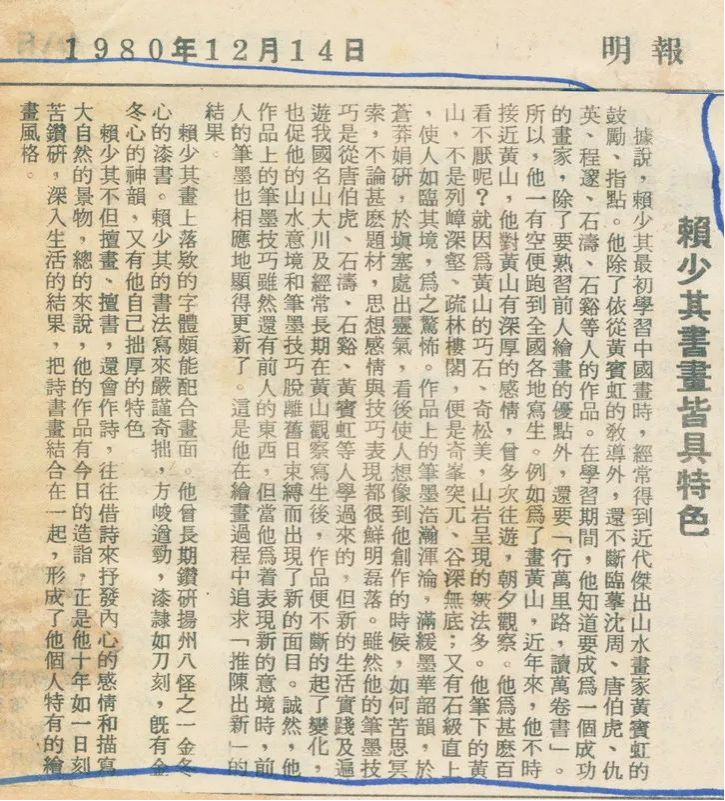 明報
1980年12月14日
賴少其書畫皆具特色
據說，賴少其最初學習中國畫時，經常得到近代傑出山水畫家黃賓虹的
鼓勵、指點。他除了依從黃賓虹的教導外，還不斷臨摹沈周、唐伯虎、仇
英、程邃、石濤、石谿等人的作品。在學習期間，他知道要成爲一個成功
的畫家，除了要熟習前人繪畫的優點外，還要「行萬里路，讀萬卷書」。
所以，他一有空便跑到全國各地寫生。例如爲了畫黃山，近年來，他不時
接近黃山，他對黃山有深厚的感情，曾多次往遊，朝夕觀察。他爲甚麽百
看不厭呢？就因爲黃山的巧石、奇松美，山岩呈現的皴法多。他筆下的黃
山，不是列嶂深壑、疏林樓閣，便是奇峯突兀、谷深無底；又有石級直上
，使人如臨其境，爲之驚怖。作品上的筆墨浩瀚渾淪，滿緩墨華韶韻，於
蒼莽娟硏，於塡塞處出靈氣，看後使人想像到他創作的時候，如何苦思冥
索，不論甚麽題材，思想感情與技巧表現都很鮮明磊落。雖然他的筆墨技
巧是從唐伯虎、石濤、石谿、黃賓虹等人學過來的，但新的生活實踐及遍
遊我國名山大川及經常長期在黃山觀察寫生後，作品便不斷的起了變化，
也促他的山水意境和筆墨技巧脫離舊日束縛而出現了新的面目。誠然，他
作品上的筆墨技巧雖然還有前人的東西，但當他爲着表現新的意境時，前
人的筆墨也相應地顯得更新了。這是他在繪畫過程中追求「推陳出新」的
結果。
賴少其畫上落欵的字體頗能配合畫面。他曾長期鑽硏揚州八怪之一金冬
心的漆書。賴少其的書法寫來嚴謹奇拙，方峻遒勁，漆隸如刀刻，旣有金
冬心的神韻，又有他自己拙厚的特色
賴少其不但擅畫、擅書，還會作詩，往往借詩來抒發內心的感情和描寫
大自然的景物，總的來說，他的作品有今日的造詣，正是他十年如一日刻
苦鑽硏，深入生活的結果，把詩書畫結合在一起，形成了他個人特有的繪
畫風格。